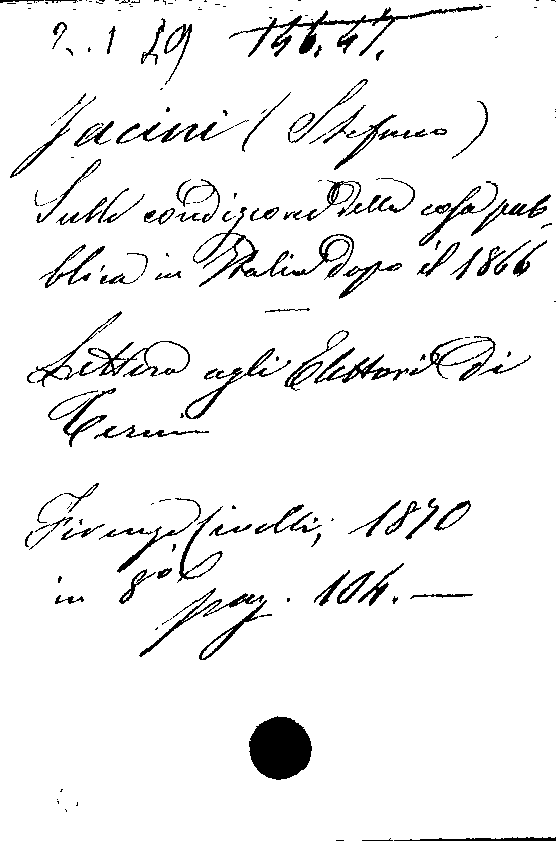 2. 1 29 146.47.
Jacini (Stefano)
Sulle condizioni della cosa pub-
blica in Italia dopo il 1866
Lettera agli Elettori di
Terni
Firenze Civelli, 1870
in 8° pag. 104. —